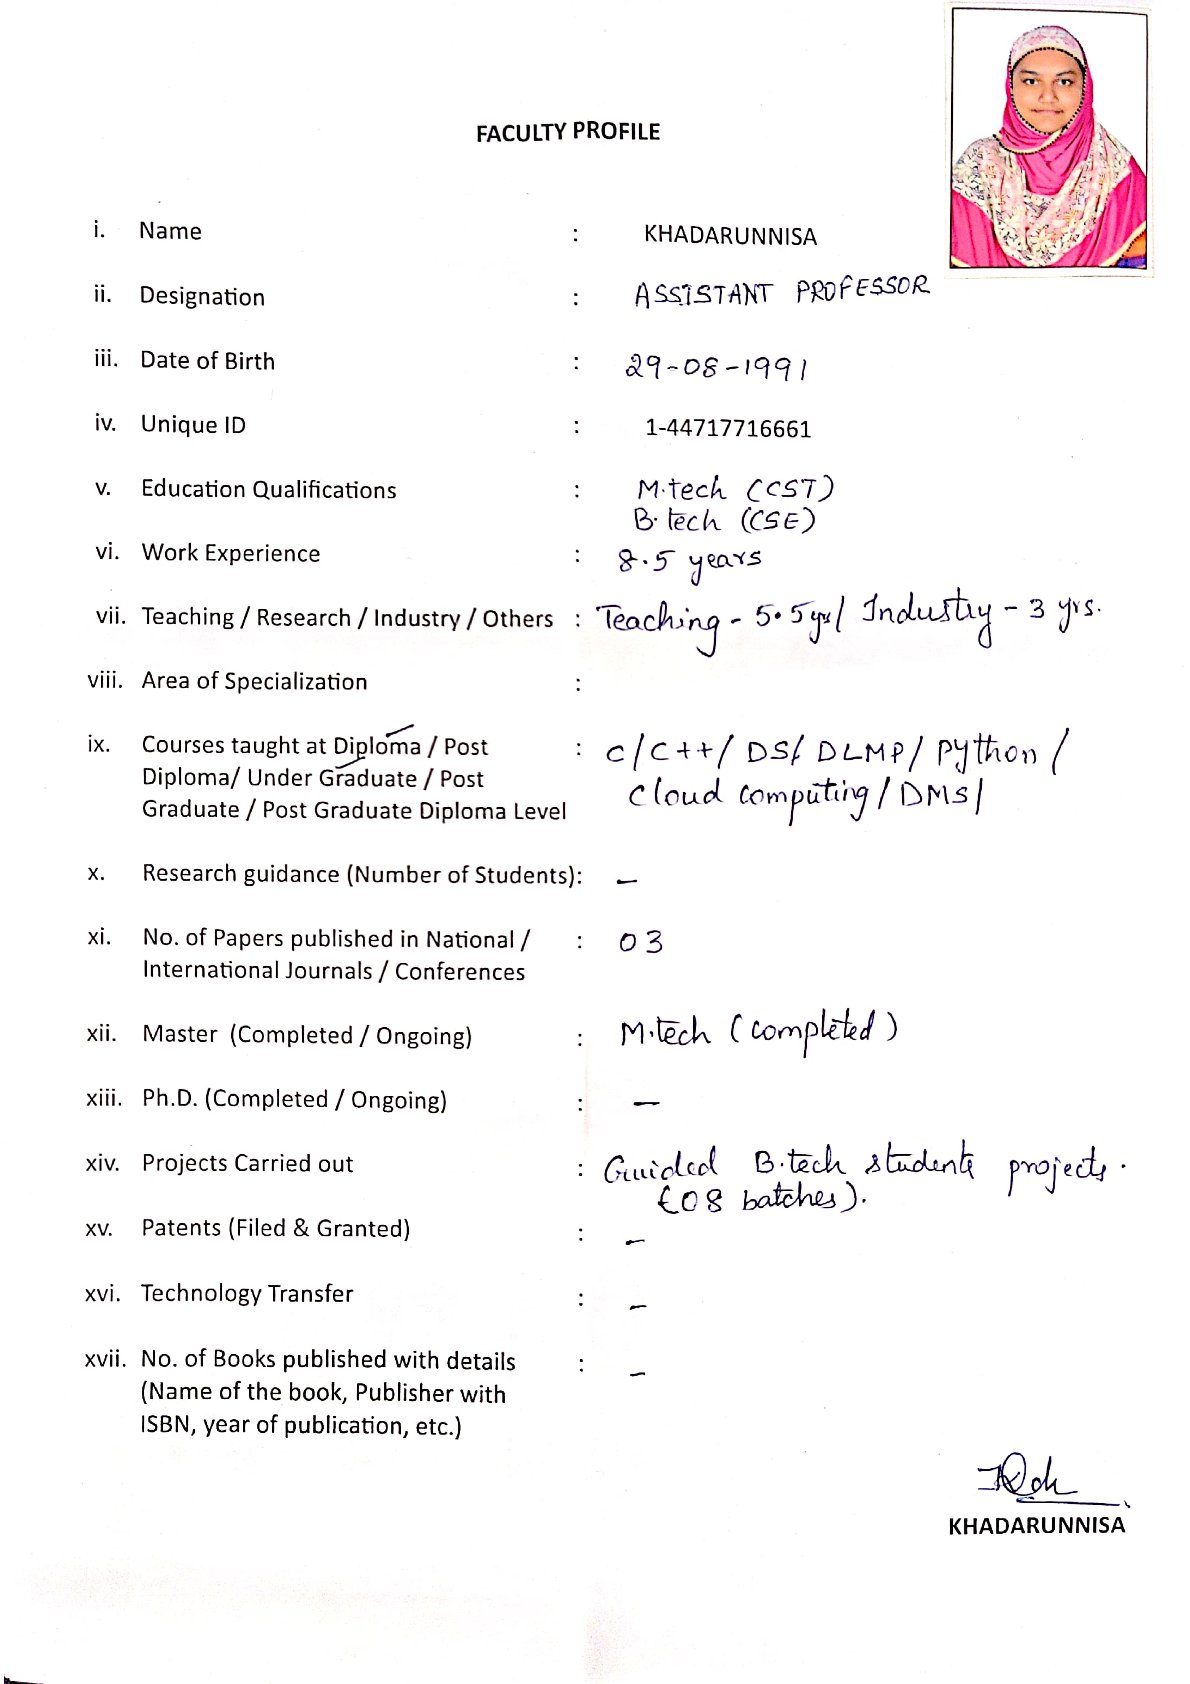 FACULTY PROFILE
i. Name : KHADARUNNISA
ii. Designation : ASSISTANT PROFESSOR
iii. Date of Birth : 29-08-1991
iv. Unique ID : 1-44717716661
v. Education Qualifications : M.tech (CST)
B.tech (CSE)
vi. Work Experience : 8.5 years
vii. Teaching / Research / Industry / Others : Teaching - 5.5yrs/ Industry - 3 yrs.
viii. Area of Specialization :
ix. Courses taught at Diploma / Post : C/C++/ DS/ DLMP/ Python /
Diploma/ Under Graduate / Post Cloud computing/ DMS/
Graduate / Post Graduate Diploma Level
x. Research guidance (Number of Students): –
xi. No. of Papers published in National / : 03
International Journals / Conferences
xii. Master (Completed / Ongoing) : M.tech (completed)
xiii. Ph.D. (Completed / Ongoing) : –
xiv. Projects Carried out : Guided B.tech students projects.
(08 batches).
xv. Patents (Filed & Granted) : –
xvi. Technology Transfer : –
xvii. No. of Books published with details : –
(Name of the book, Publisher with
ISBN, year of publication, etc.)
KHADARUNNISA